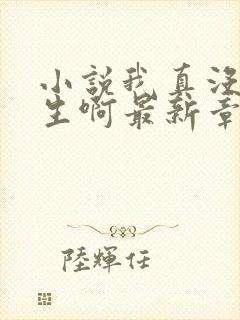 小説我真沒
生啊最新章
陸輝任